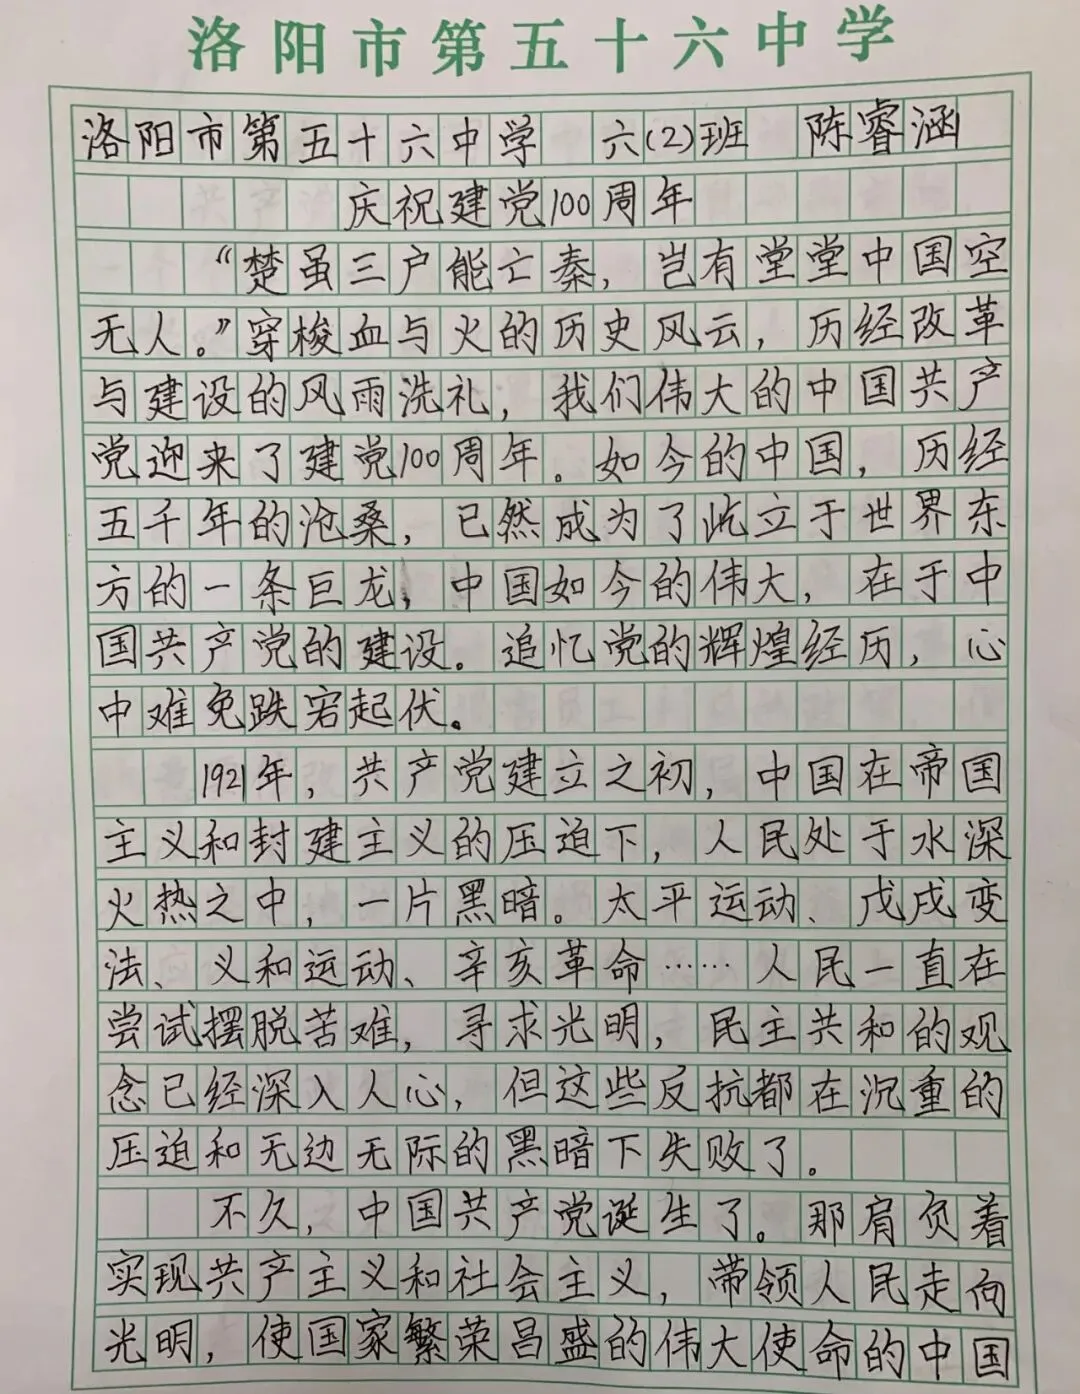 洛阳市第五十六中学
洛阳市第五十六中学 六(2)班 陈睿涵
庆祝建党100周年
“楚虽三户能亡秦，岂有堂堂中国空
无人。”穿梭血与火的历史风云，历经改革
与建设的风雨洗礼，我们伟大的中国共产
党迎来了建党100周年。如今的中国，历经
五千年的沧桑，已然成为了屹立于世界东
方的一条巨龙，中国如今的伟大，在于中
国共产党的建设。追忆党的辉煌经历，心
中难免跌宕起伏。
1921年，共产党建立之初，中国在帝国
主义和封建主义的压迫下，人民处于水深
火热之中，一片黑暗。太平运动、戊戌变
法、义和运动、辛亥革命……人民一直在
尝试摆脱苦难，寻求光明，民主共和的观
念已经深入人心，但这些反抗都在沉重的
压迫和无边无际的黑暗下失败了。
不久，中国共产党诞生了。那肩负着
实现共产主义和社会主义，带领人民走向
光明，使国家繁荣昌盛的伟大使命的中国